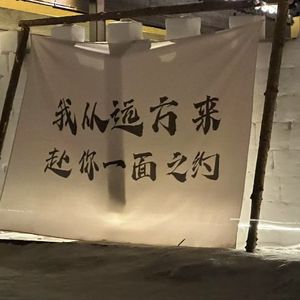 我从远方来
赴你一面之约